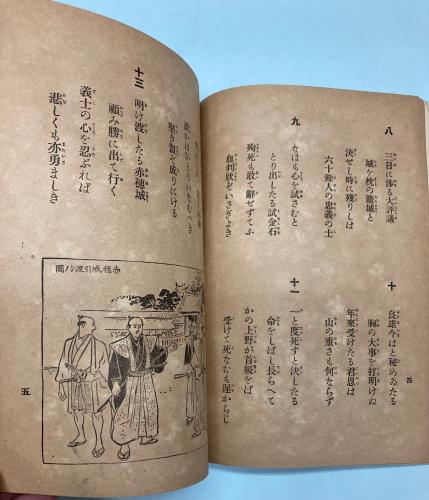 八
三日に渉る大評議
城を枕の籠城と
決せし時に殘りしは
六十餘人の忠義の士
九
なほも心を試さむと
とり出したる試金石
殉死も敢て辭せずてふ
血判狀ぞいさぎよき
十
良雄今はと秘めゐたる
胸の大事を打明けぬ
年來受けたる君恩は
山の重さも何ならず
十一
一と度死すと決したる
命をしばし長らへて
かの上野が首級をば
受けて死なむも遲からじ
四
誰かはひとりいなむべき
堅き盟ぞ成りにける
十三
明け渡したる赤穗城
顧み勝に出て行く
義士の心を忍ぶれば
悲しくも亦勇ましき
赤穗城引渡ノ圖
五